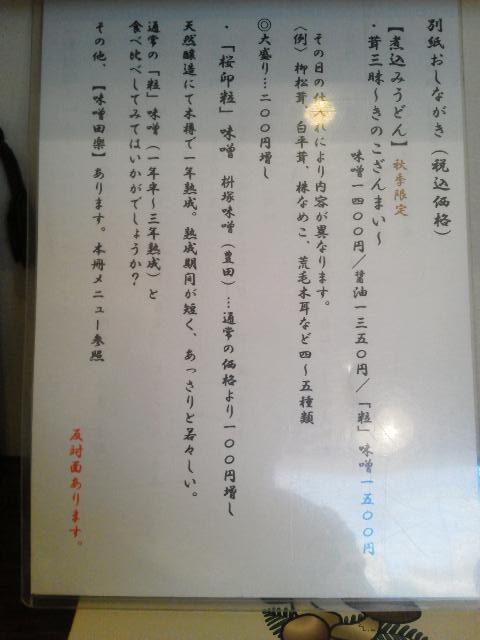 別紙おしながき（税込価格）
【煮込みうどん】秋季限定
・茸三昧～きのこざんまい～
味噌一四〇〇円／醤油一三五〇円／「粒」味噌一五〇〇円
その日の仕入れにより内容が異なります。
（例）柳松茸、白平茸、株なめこ、荒毛木耳など四～五種類
◎大盛り…二〇〇円増し
・「桜印粒」味噌　桝塚味噌（豊田）…通常の価格より一〇〇円増し
天然醸造にて木樽で一年熟成。熟成期間が短く、あっさりと若々しい。
通常の「粒」味噌（一年半～三年熟成）と
食べ比べしてみてはいかがでしょうか？
その他、【味噌田楽】あります。本冊メニュー参照
反対面あります。